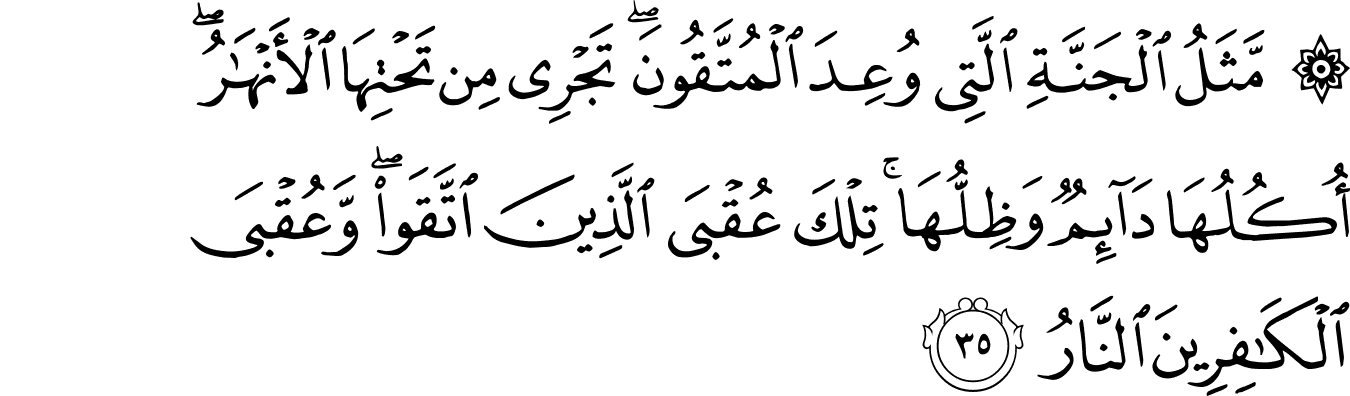 ۞ مَّثَلُ ٱلْجَنَّةِ ٱلَّتِى وُعِدَ ٱلْمُتَّقُونَ ۖ تَجْرِى مِن تَحْتِهَا ٱلْأَنْهَٰرُ ۖ
أُكُلُهَا دَآئِمٌ وَظِلُّهَا ۚ تِلْكَ عُقْبَى ٱلَّذِينَ ٱتَّقَوا۟ ۖ وَّعُقْبَى
ٱلْكَٰفِرِينَ ٱلنَّارُ ٣٥